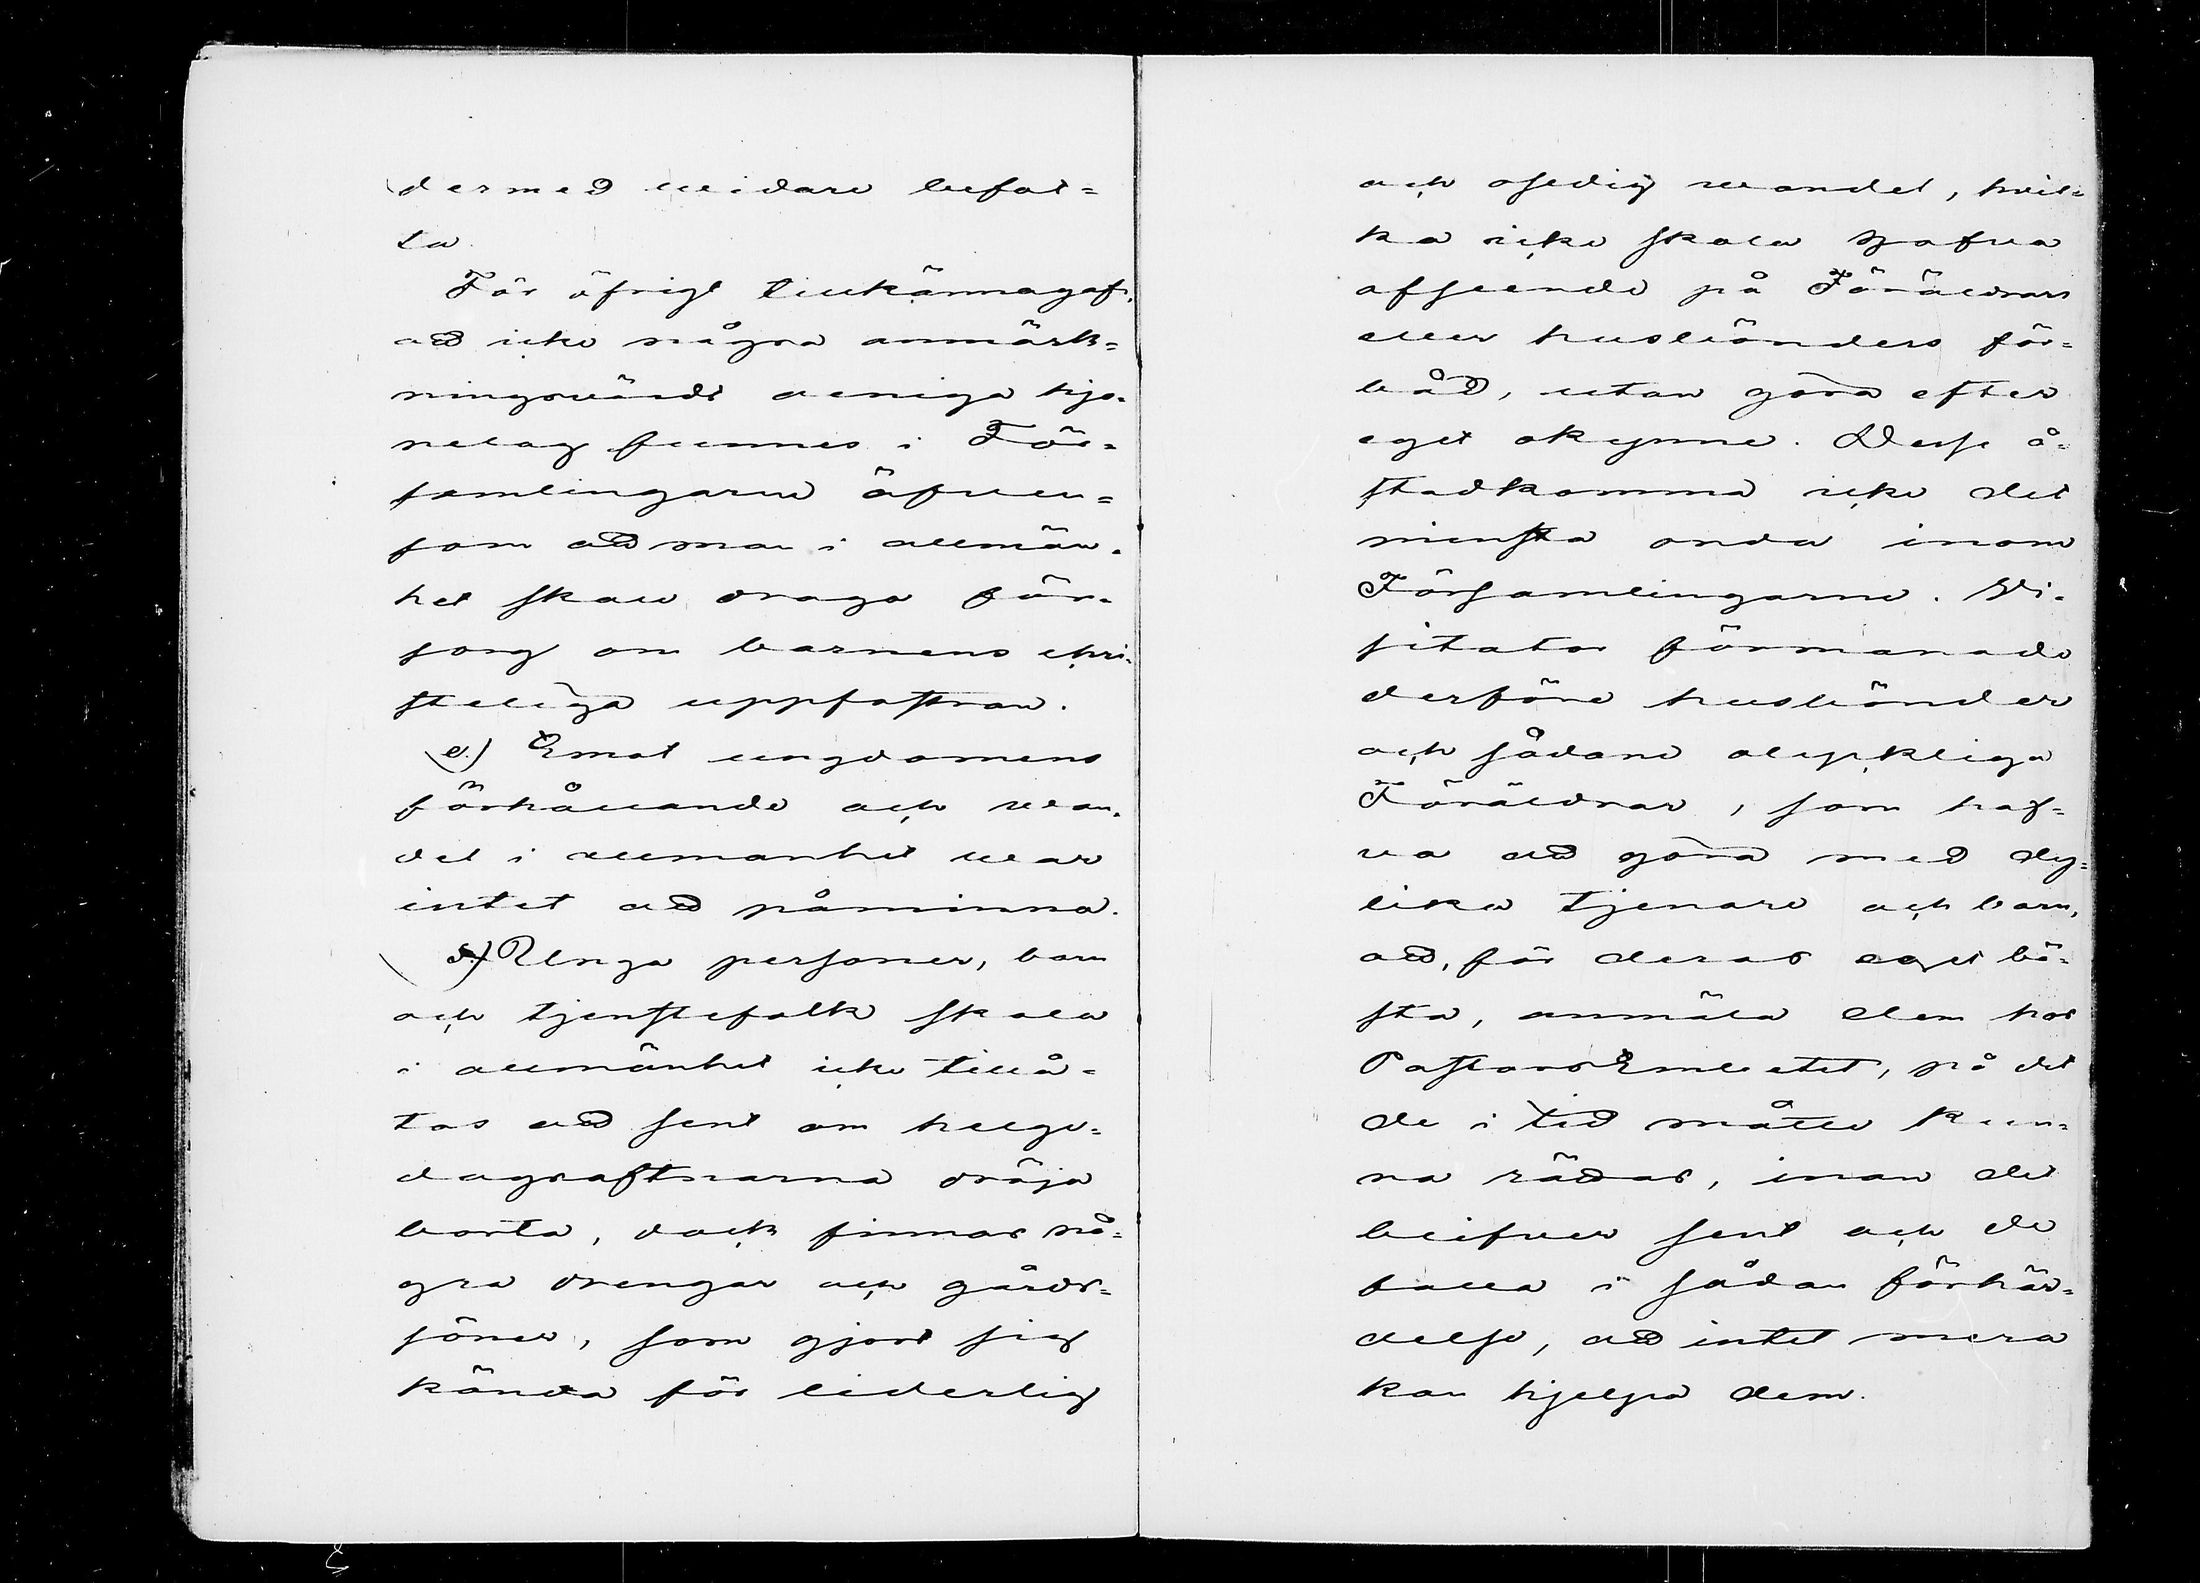 dermed widare befat=
ta.
För öfrigt tillkännagafs,
att icke några anmärk=
ningswärdt oeniga hjo=
nelag funnes i För=
samlingarne äfwen=
som att man i allmän=
het skall draga för=
sorg om barnens chri=
steliga uppfostran.
e.) Emot ungdomens
förhållande och wan=
del i allmänhet war
intet att påminna.
f.) Unga personer, barn
och tjenstefolk skola
i allmänhet icke tillå=
tas att sent om helge=
dagsaftnarna dröja
borta, dock finnas nå=
gra drengar och gårds=
söner, som gjort sig
kända för liderlig
och osedig wandel, hvil=
ka icke skola hafwa
afseende på Föräldrars
eller husbönders för=
båd, utan göra efter
eget okynne. Desse å=
stadkomma icke det
minsta onda inom
Församlingarne. Vi=
sitator förmanade
derföre husbönder
och sådane olyckliga
Föräldrar, som haf=
wa att göra med dy=
lika tjenare och barn,
att, för deras eget bä=
sta, anmäla dem hos
PastorsEmbetet, på det
de i tid måtte kun=
na rättas, innan det
blifwer sent och de
falla i sådan förhär=
delse, att intet mera
kan hjelpa dem.